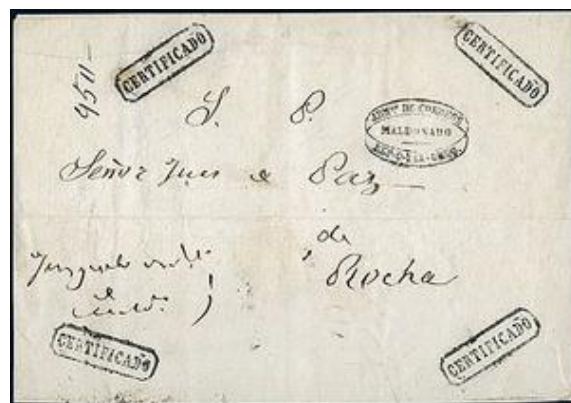 CERTIFICADO
CERTIFICADO
9511-
S. P.
ADMON DE CORREOS
MALDONADO
Señor Juez de Paz
de
Rocha
Juzgado
CERTIFICADO
CERTIFICADO